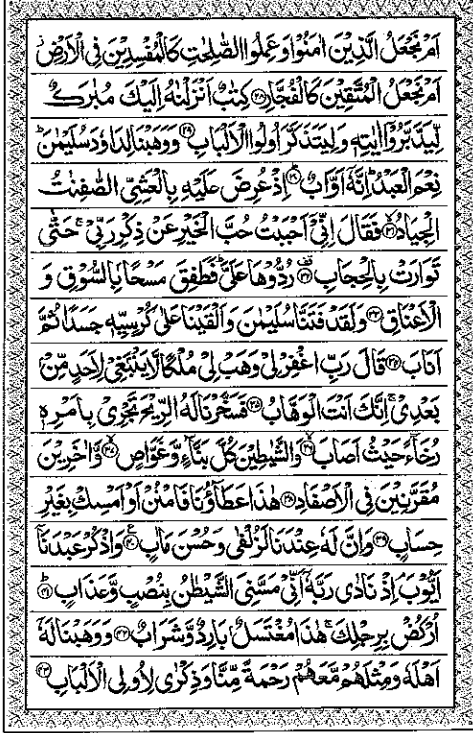 اَمْ نَجْعَلُ الَّذِيْنَ اٰمَنُوْا وَعَمِلُوا الصّٰلِحٰتِ كَالْمُفْسِدِيْنَ فِى الْاَرْضِ
اَمْ نَجْعَلُ الْمُتَّقِيْنَ كَالْفُجَّارِ ﴿۲۸﴾ كِتٰبٌ اَنْزَلْنٰهُ اِلَيْكَ مُبٰرَكٌ
لِّيَدَّبَّرُوْۤا اٰيٰتِهٖ وَلِيَتَذَكَّرَ اُولُوا الْاَلْبَابِ ﴿۲۹﴾ وَوَهَبْنَا لِدَاوٗدَ سُلَيْمٰنَ ؕ
نِعْمَ الْعَبْدُ ؕ اِنَّهٗۤ اَوَّابٌ ؕ﴿۳۰﴾ اِذْ عُرِضَ عَلَيْهِ بِالْعَشِىِّ الصّٰفِنٰتُ
الْجِيَادُ ۙ﴿۳۱﴾ فَقَالَ اِنِّىْۤ اَحْبَبْتُ حُبَّ الْخَيْرِ عَنْ ذِكْرِ رَبِّىْ ۚ حَتّٰى
تَوَارَتْ بِالْحِجَابِ ﴿۳۲﴾ رُدُّوْهَا عَلَىَّ ؕ فَطَفِقَ مَسْحًۢا بِالسُّوْقِ وَ
الْاَعْنَاقِ ﴿۳۳﴾ وَلَقَدْ فَتَنَّا سُلَيْمٰنَ وَاَلْقَيْنَا عَلٰى كُرْسِيِّهٖ جَسَدًا ثُمَّ
اَنَابَ ﴿۳۴﴾ قَالَ رَبِّ اغْفِرْ لِىْ وَهَبْ لِىْ مُلْكًا لَّا يَنْۢبَغِىْ لِاَحَدٍ مِّنْۢ
بَعْدِىْ ۚ اِنَّكَ اَنْتَ الْوَهَّابُ ﴿۳۵﴾ فَسَخَّرْنَا لَهُ الرِّيْحَ تَجْرِىْ بِاَمْرِهٖ
رُخَآءً حَيْثُ اَصَابَ ۙ﴿۳۶﴾ وَالشَّيٰطِيْنَ كُلَّ بَنَّآءٍ وَّغَوَّاصٍ ۙ﴿۳۷﴾ وَّاٰخَرِيْنَ
مُقَرَّنِيْنَ فِى الْاَصْفَادِ ﴿۳۸﴾ هٰذَا عَطَآؤُنَا فَامْنُنْ اَوْ اَمْسِكْ بِغَيْرِ
حِسَابٍ ﴿۳۹﴾ وَاِنَّ لَهٗ عِنْدَنَا لَزُلْفٰى وَحُسْنَ مَاٰبٍ ﴿۴۰﴾ وَاذْكُرْ عَبْدَنَاۤ
اَيُّوْبَ ۘ اِذْ نَادٰى رَبَّهٗۤ اَنِّىْ مَسَّنِىَ الشَّيْطٰنُ بِنُصْبٍ وَّعَذَابٍ ؕ﴿۴۱﴾
اُرْكُضْ بِرِجْلِكَ ۚ هٰذَا مُغْتَسَلٌۢ بَارِدٌ وَّشَرَابٌ ﴿۴۲﴾ وَوَهَبْنَا لَهٗۤ
اَهْلَهٗ وَمِثْلَهُمْ مَّعَهُمْ رَحْمَةً مِّنَّا وَذِكْرٰى لِاُولِى الْاَلْبَابِ ﴿۴۳﴾